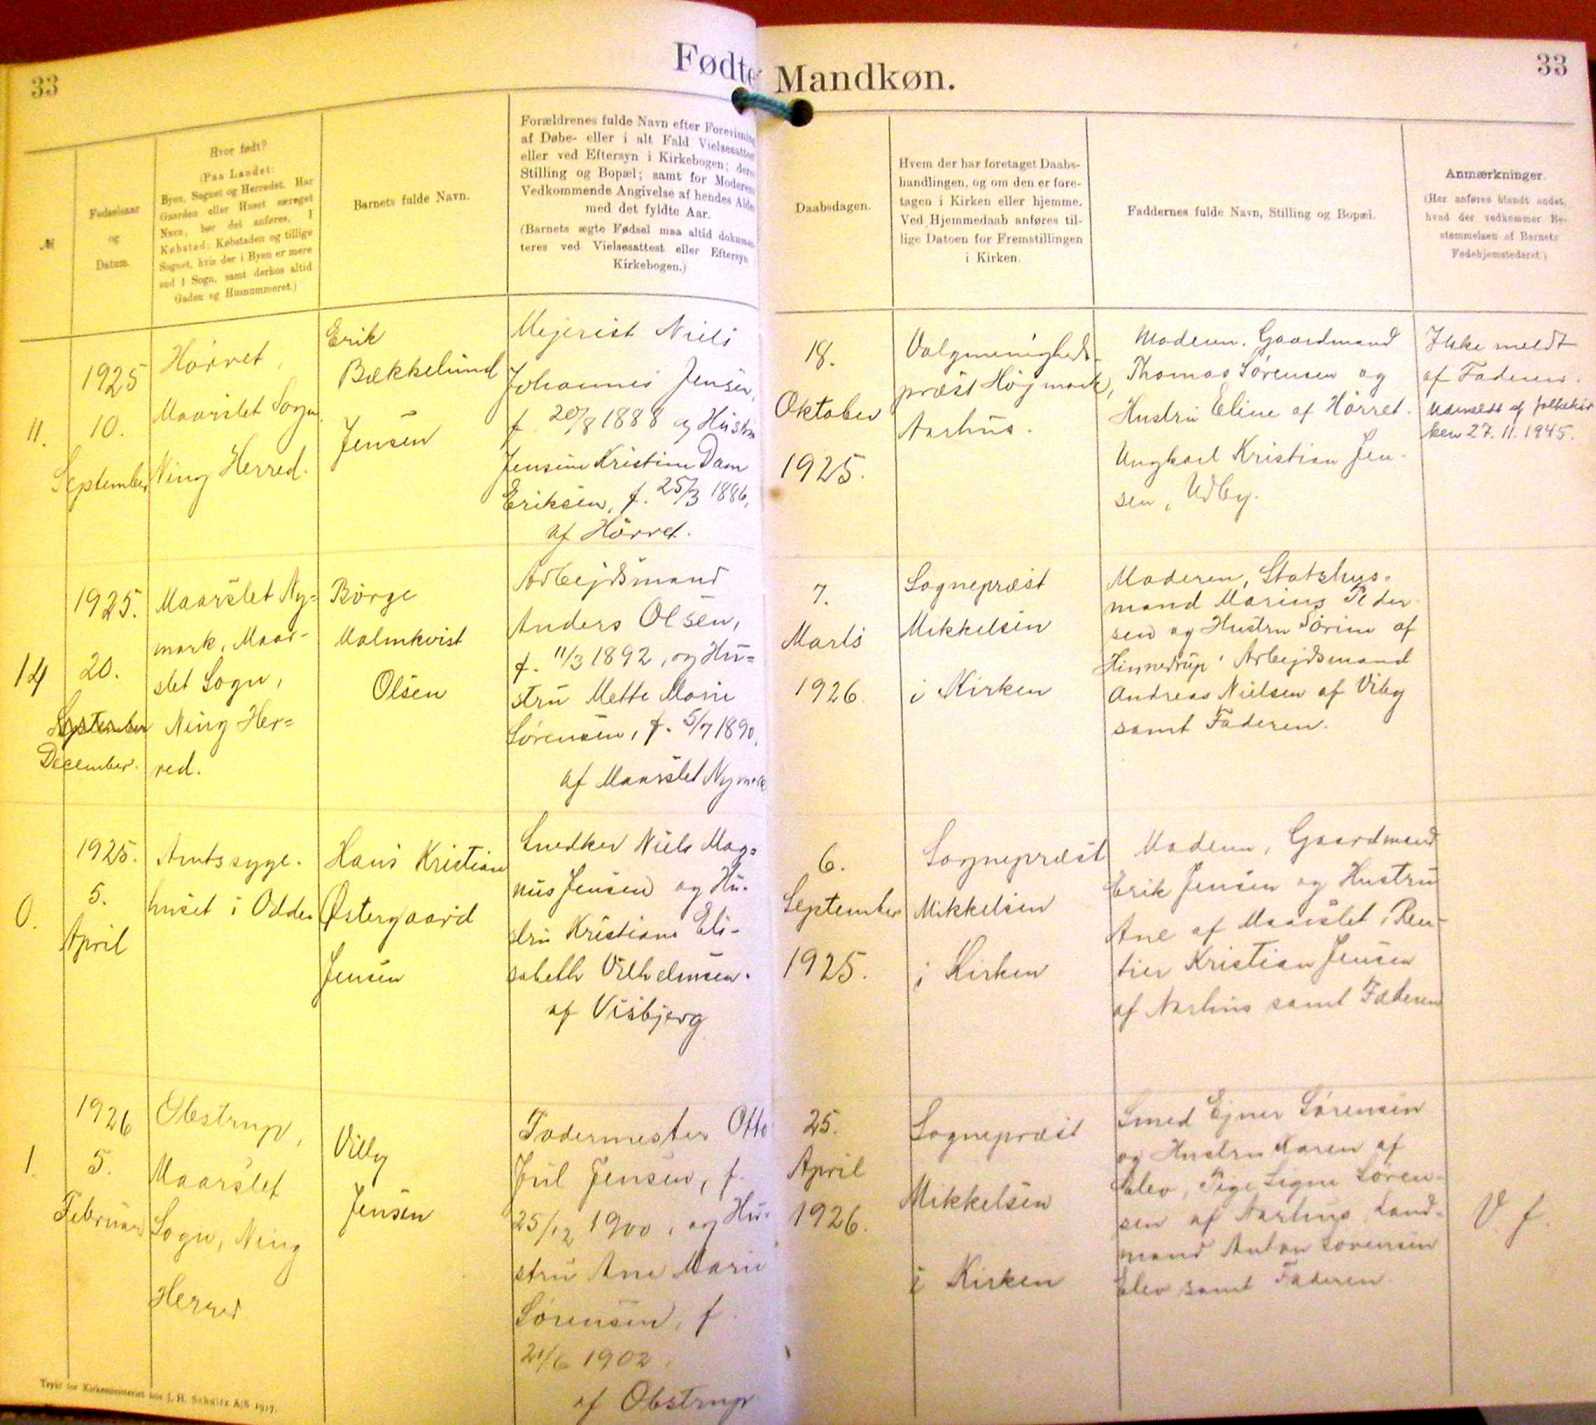 33
Fødte Mandkøn.
33
№
Fødselsaar
og
Datum.
Hvor født?
(Paa Landet:
Byen, Sognet og Herredet. Har
Gaarden eller Huset særeget
Navn, bør det anføres. I
Købstad: Købstaden og tillige
Sognet, hvis der i Byen er mere
end 1 Sogn, samt derhos altid
Gaden og Husnummeret.)
Barnets fulde Navn.
Forældrenes fulde Navn efter Forevisning
af Døbe- eller i alt Fald Vielsesattest
eller ved Eftersyn i Kirkebogen; deres
Stilling og Bopæl; samt for Moderens
Vedkommende Angivelse af hendes Alder
med det fyldte Aar.
(Barnets ægte Fødsel maa altid dokumen-
teres ved Vielsesattest eller Eftersyn
Kirkebogen.)
Daabsdagen.
Hvem der har foretaget Daabs-
handlingen, og om den er fore-
tagen i Kirken eller hjemme.
Ved Hjemmedaab anføres til-
lige Datoen for Fremstillingen
i Kirken.
Faddernes fulde Navn, Stilling og Bopæl.
Anmærkninger.
(Her anføres blandt andet,
hvad der vedkommer Be-
stemmelsen af Barnets
Fødehjemstederet.)
11.
1925
10.
September
Hørret,
Maarslet Sogn
Ning Herred.
Erik
Bækkelund
Jensen
Mejerist Niels
Johannes Jensen,
f. 20/8 1888 og Hustru
Jensine Kristine Dam
Eriksen, f. 25/3 1886,
af Hørret.
18.
Oktober
1925.
Valgmenigheds-
præst Højmark,
Aarhus.
Moderen. Gaardmand
Thomas Sørensen og
Hustru Eline af Hørret.
Ungkarl Kristian Jen-
sen, Udby.
Ikke meldt
af Faderen.
Udmeldt af folkekir
ken 27.11.1945.
14
1925.
20.
September
December.
Maarslet Ny=
mark, Maar-
slet Sogn,
Ning Her=
red.
Børge
Malmkvist
Olsen
Arbejdsmand
Anders Olsen,
f. 11/3 1892, og Hu=
stru Mette Marie
Sørensen, f. 5/7 1890,
af Maarslet Nymark
7.
Marts
1926
Sognepræst
Mikkelsen
i Kirken
Moderen, Statshus-
mand Marius Peder-
sen og Hustru Sørine af
Hinnedrup, Arbejdsmand
Andreas Nielsen af Viby
samt Faderen.
0.
1925.
5.
April
Amtssyge-
huset i Odder
Hans Kristian
Østergaard
Jensen
Snedker Niels Mag=
nus Jensen og Hu-
stru Kristiane Eli-
sabeth Vilhelmsen.
af Visbjerg
6.
September
1925.
Sognepræst
Mikkelsen
i Kirken
Moderen, Gaardmand
Erik Jensen og Hustru
Ane af Maarslet, Ren-
tier Kristian Jensen
af Aarhus samt Faderen
1.
1926
5.
Februar
Obstrup,
Maarslet
Sogn, Ning
Herred
Villy
Jensen
Fodermester Otto
Juil Jensen, f.
25/12 1900, og Hu-
stru Ane Marie
Sørensen, f.
21/6 1902.
af Obstrup
25.
April
1926.
Sognepræst
Mikkelsen
i Kirken
Smed Ejner Sørensen
og Hustru Karen af
Elev, Pige Signe Søren-
sen af Aarhus, Land-
mand Anton Sørensen
Elev samt Faderen
V. f.
Trykt for Kirkeministeriet hos J. H. Schultz A/S 1917.